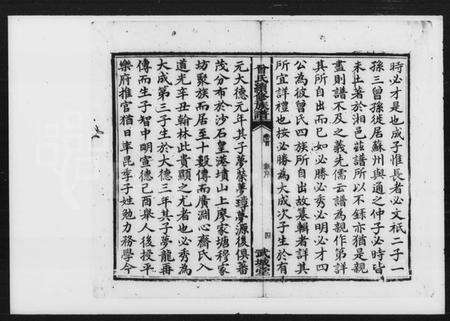 時必才是也成子惟長者必文祇二子一
孫三曾孫徙居蘇州與通之仲子必時皆
未土著於湘邑茲譜所以不錄亦猶是親
盡則譜不及之義先儒云譜為親作第詳
其所自出而已如必勝必秀必明必才四
公為彼曾氏四族所自出故纂輯者詳其
所宜詳禮也按必勝為大成次子生於有
曾氏續修族譜
卷首
四
武城堂
元大德元年其子夢槃夢璋夢源後俱蕃
茂分布於沙石皇港墳山上廖家塘穆家
坊聚族而居至十穀傳而廣淵心齋氏入
道光辛丑翰林此貴顯之尤者也必秀為
大成第三子生於大德三年其子夢龍再
傳而生子智中明宣德己酉舉人後授平
樂府推官猶日率昆季子姓勉力務學今